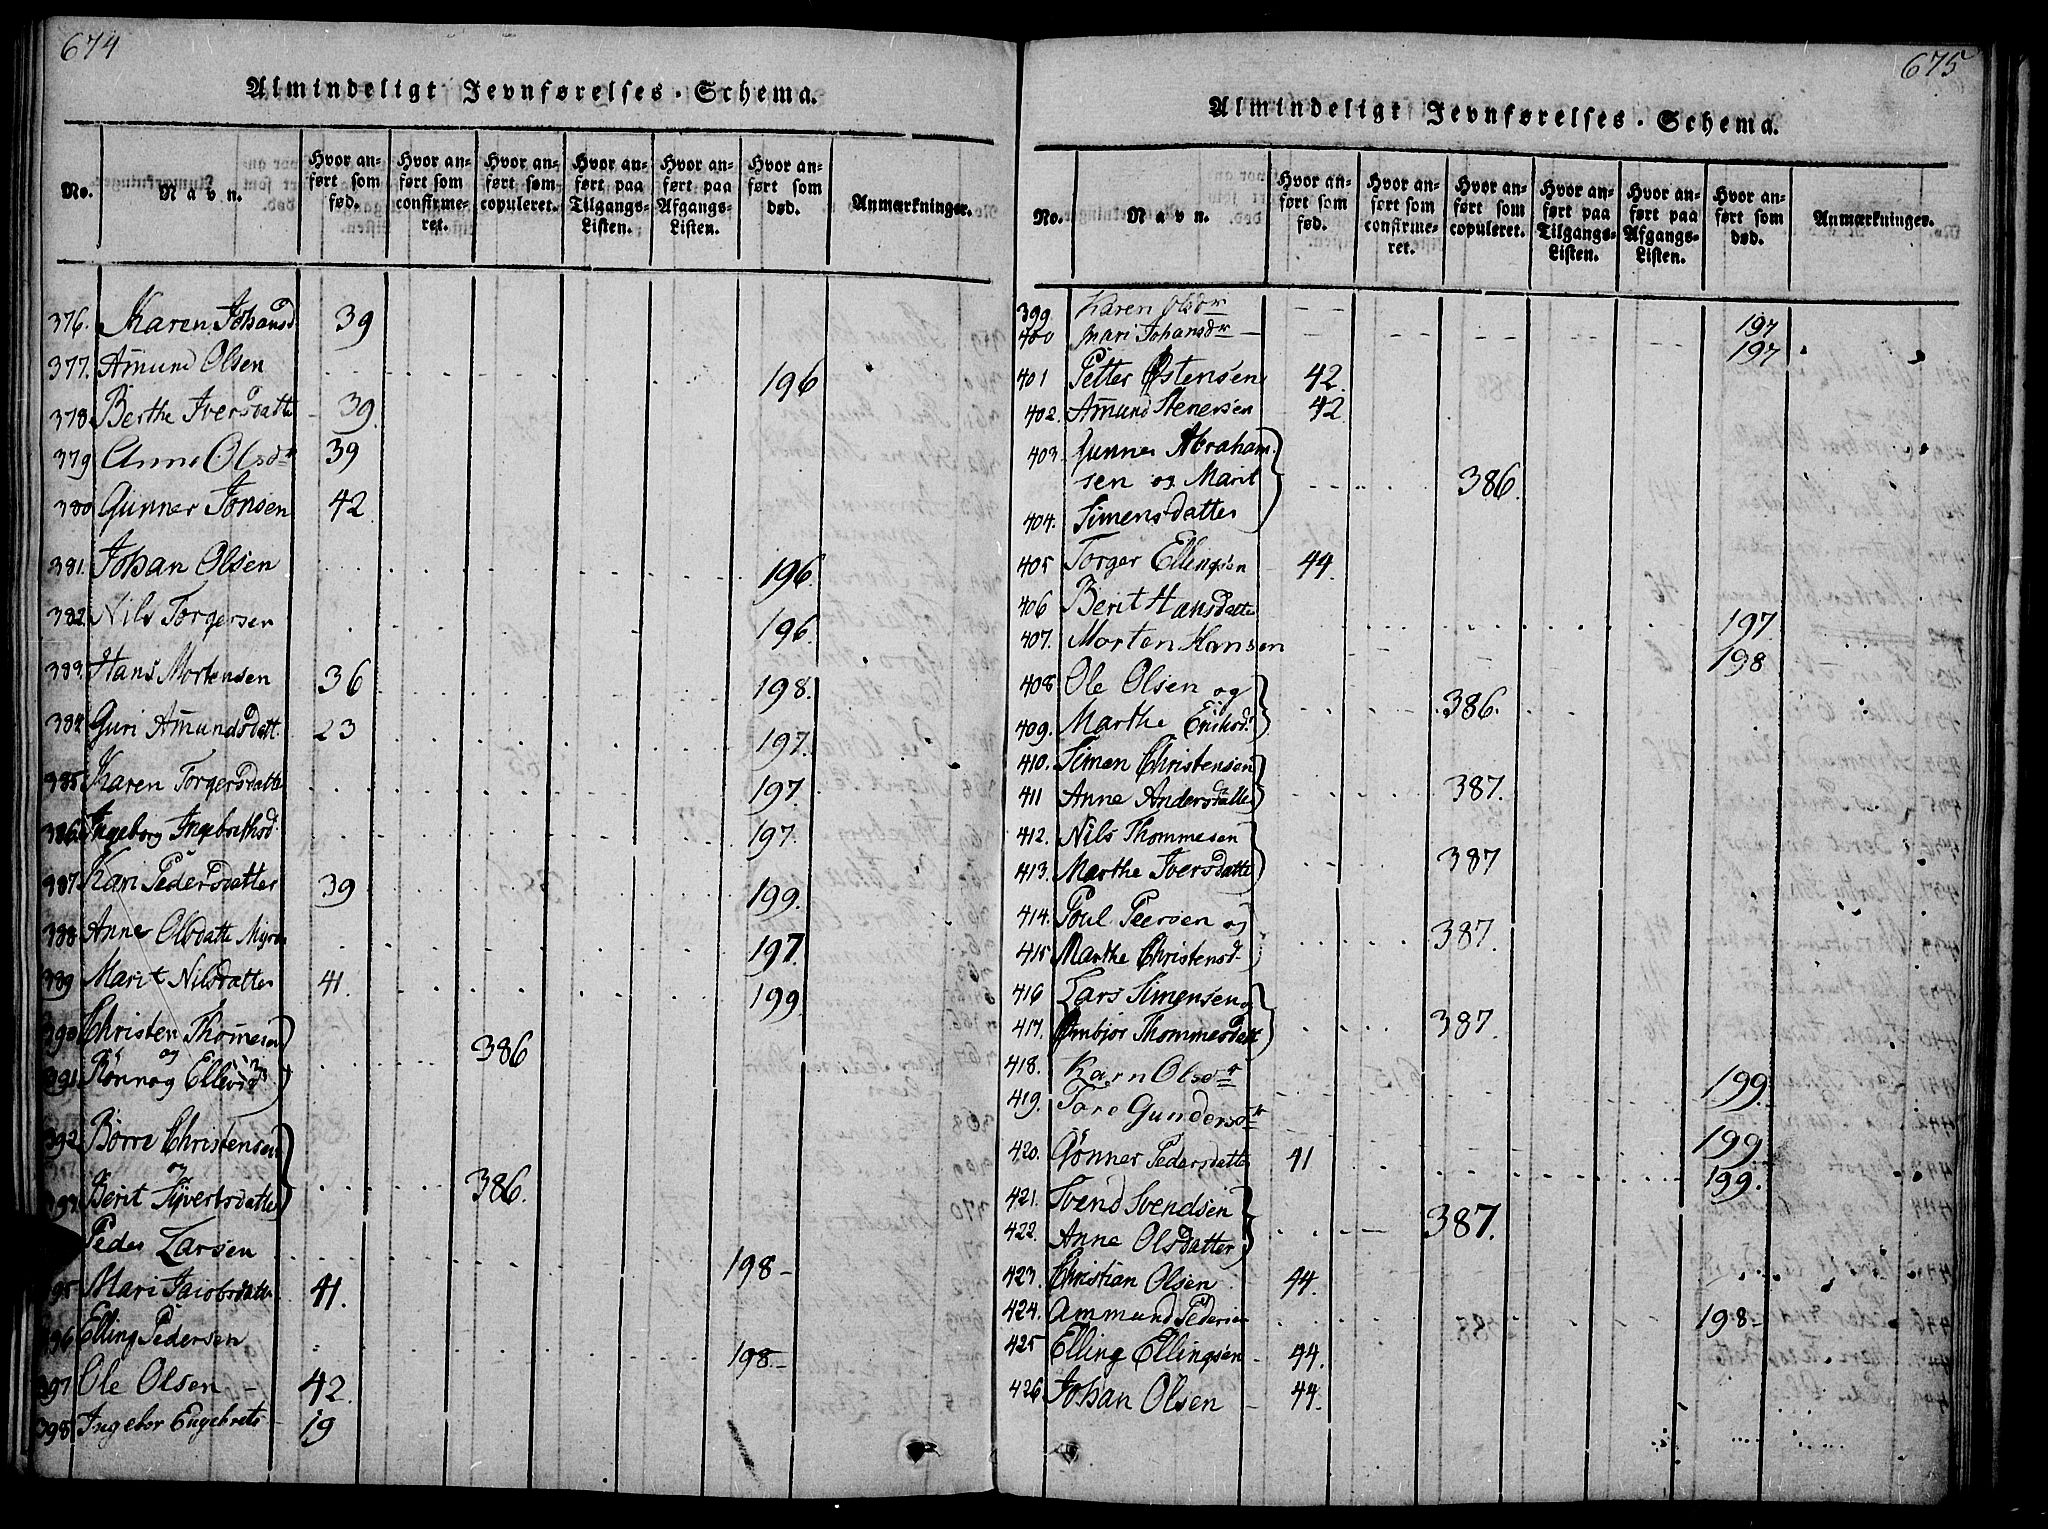 674
Almindeligt Jevnførelses-Schema.
No. Navn. Hvor anført som fød. Hvor anført som confirmeret. Hvor anført som copuleret. Hvor anført paa Tilgangs-Listen. Hvor anført paa Afgangs-Listen. Hvor anført som død. Anmærkninger.
376. Karen Johansd 39
377. Amund Olsen 196
378. Berthe Iversdatter 39.
379 Anne Olsdr 39
380 Gunner Jonsen 42
381. Johan Olsen 196.
382. Nils Torgersen 196.
383. Hans Mortensen 36 198.
384 Guri Amundsdatt. 23 197.
385. Karen Torgersdatter 197.
386. Ingeborg Ingebrethsd. 197.
387. Kari Pedersdatter 39 199.
388 Anne Olsdatte 197.
389 Marit Nilsdatter 41. 199.
390 Christen Thomesen
og 386
391. Rönnog
392. Börre Christensen
og
Berit Syvertsdatter 386.
Peder Larsen 198-
395 Mari Jacobsdatter 41.
396 Elling Pedersen 198.-
397 Ole Olsen - 42.
398 Ingebor Engebrets 19
675
Almindeligt Jevnførelses-Schema.
No. Navn. Hvor anført som fød. Hvor anført som confirmeret. Hvor anført som copuleret. Hvor anført paa Tilgangs-Listen. Hvor anført paa Afgangs-Listen. Hvor anført som død. Anmærkninger.
399 Karen Olsdr 197
400 Mari Johansdr 197
401 Petter Östensen 42.
402. Amund Stenersen 42
403. Gunner Abraham-
sen og Marit 386.
404. Simensdatter
405 Torger Ellingsen 44.
406 Berit Hansdatter 197
407. Morten Hansen 198
408 Ole Olsen og
409. Marthe Eriksd. 386.
410. Simen Christensen
411 Anne Andersdatter 387.
412. Nils Thommesen
413. Marthe Iversdatter 387
414. Poul Peersen og
415 Marthe Christensd. 387.
416 Lars Simensen og
417. Embjor Thommesdatt 387.
418. Karn Olsdr 199.
419. Tore Gundersdr 199.
420. Gönner Pedersdatter 41 199.
421. Svend Svendsen
422. Anne Olsdatter 387.
423. Christian Olsen 44.
424. Ammund Pedersen 198-
425 Elling Ellingsen 44.
426 Johan Olsen 44.